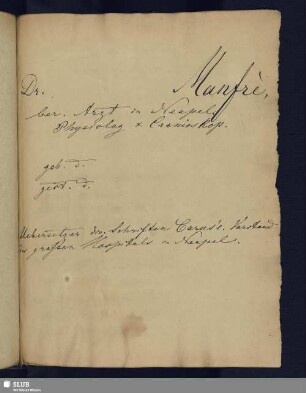 Dr. Manfrè,
ber. Arzt in Neapel
Physiolog & Cranioskop.
geb. d.
gest. d.
Uebersetzer der Schriften Carus's. Vorstand
des grossen Hospitals in Neapel.
SLUB